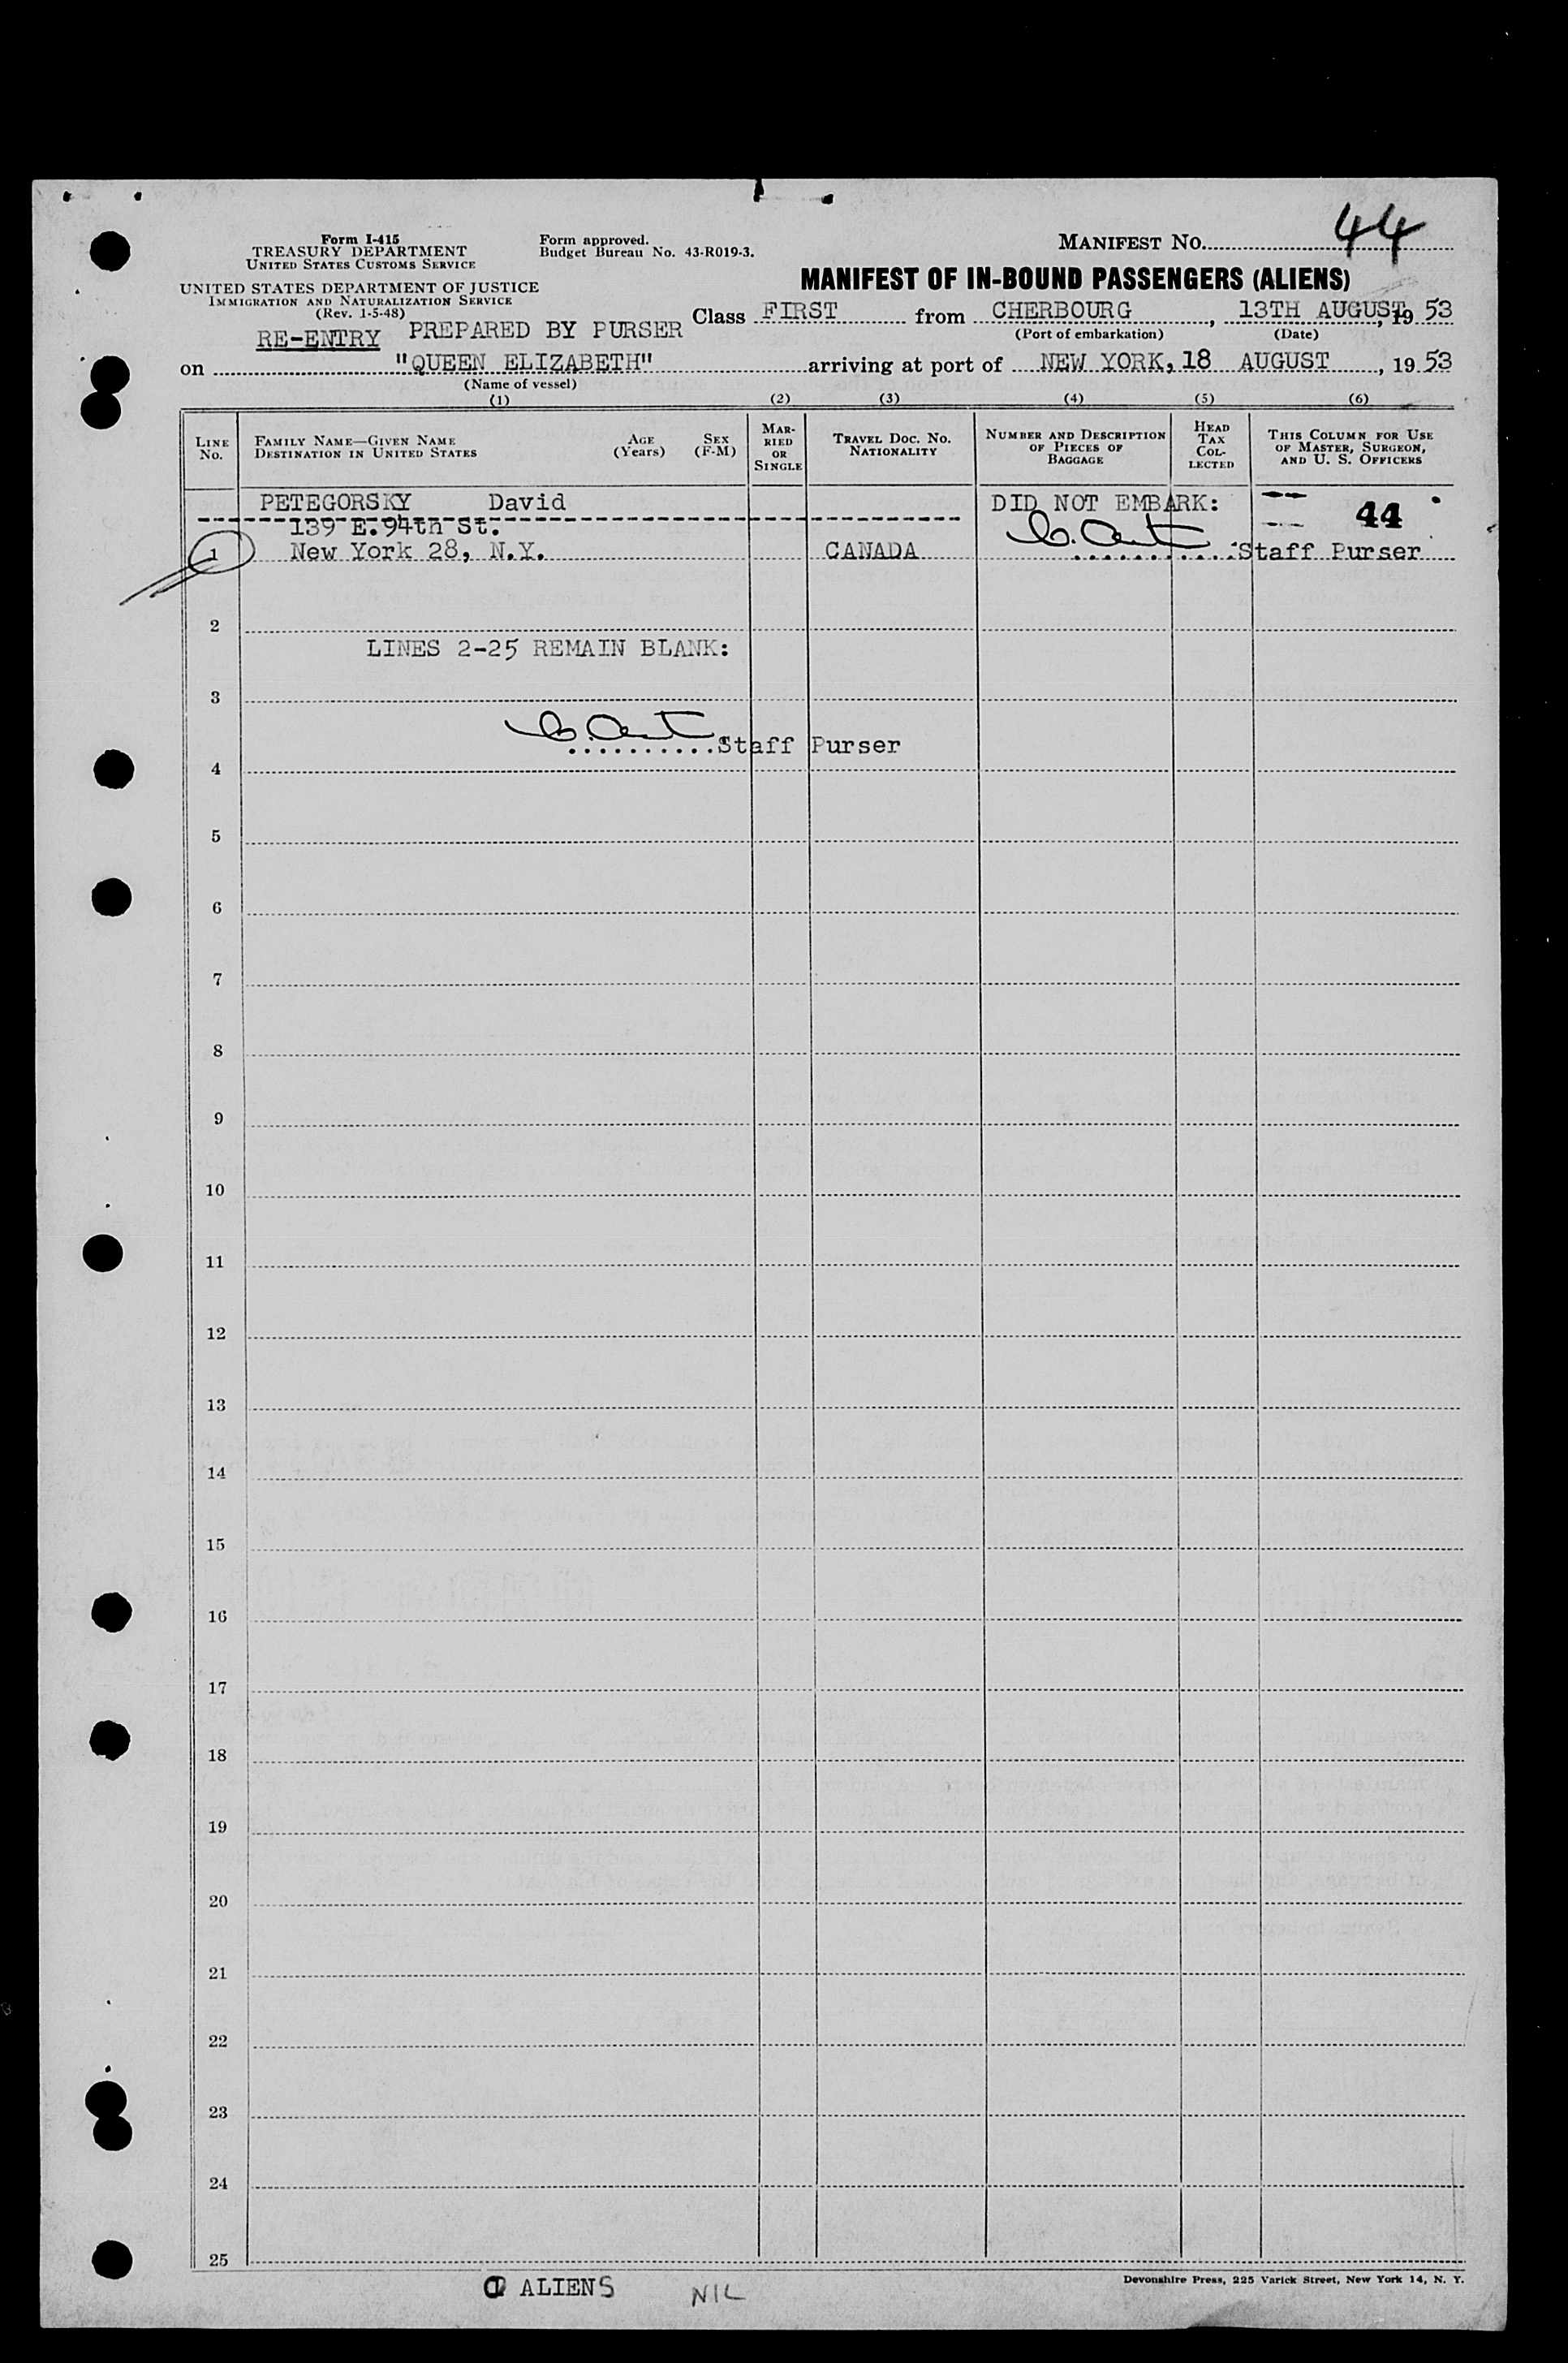 Form I-415
TREASURY DEPARTMENT
UNITED STATES CUSTOMS SERVICE
UNITED STATES DEPARTMENT OF JUSTICE
IMMIGRATION AND NATURALIZATION SERVICE
(Rev. 1-5-48)
Form approved.
Budget Bureau No. 43-R019-3.
MANIFEST NO. 44
MANIFEST OF IN-BOUND PASSENGERS (ALIENS)
RE-ENTRY PREPARED BY PURSER
Class FIRST from CHERBOURG, 13TH AUGUST, 19 53
(Port of embarkation) (Date)
on "QUEEN ELIZABETH" arriving at port of NEW YORK, 18 AUGUST, 19 53
(Name of vessel)
(1) (2) (3) (4) (5) (6)
LINE NO.
FAMILY NAME—GIVEN NAME
DESTINATION IN UNITED STATES
AGE (Years)
SEX (F-M)
MARRIED OR SINGLE
TRAVEL DOC. NO.
NATIONALITY
NUMBER AND DESCRIPTION
OF PIECES OF
BAGGAGE
HEAD
TAX
COLLECTED
THIS COLUMN FOR USE
OF MASTER, SURGEON,
AND U. S. OFFICERS
PETEGORSKY David DID NOT EMBARK:
139 E. 94th St. 44
1 New York 28, N.Y. CANADA Staff Purser
2
LINES 2-25 REMAIN BLANK:
3
Staff Purser
4
5
6
7
8
9
10
11
12
13
14
15
16
17
18
19
20
21
22
23
24
25
ALIENS NIL
Devonshire Press, 225 Varick Street, New York 14, N. Y.